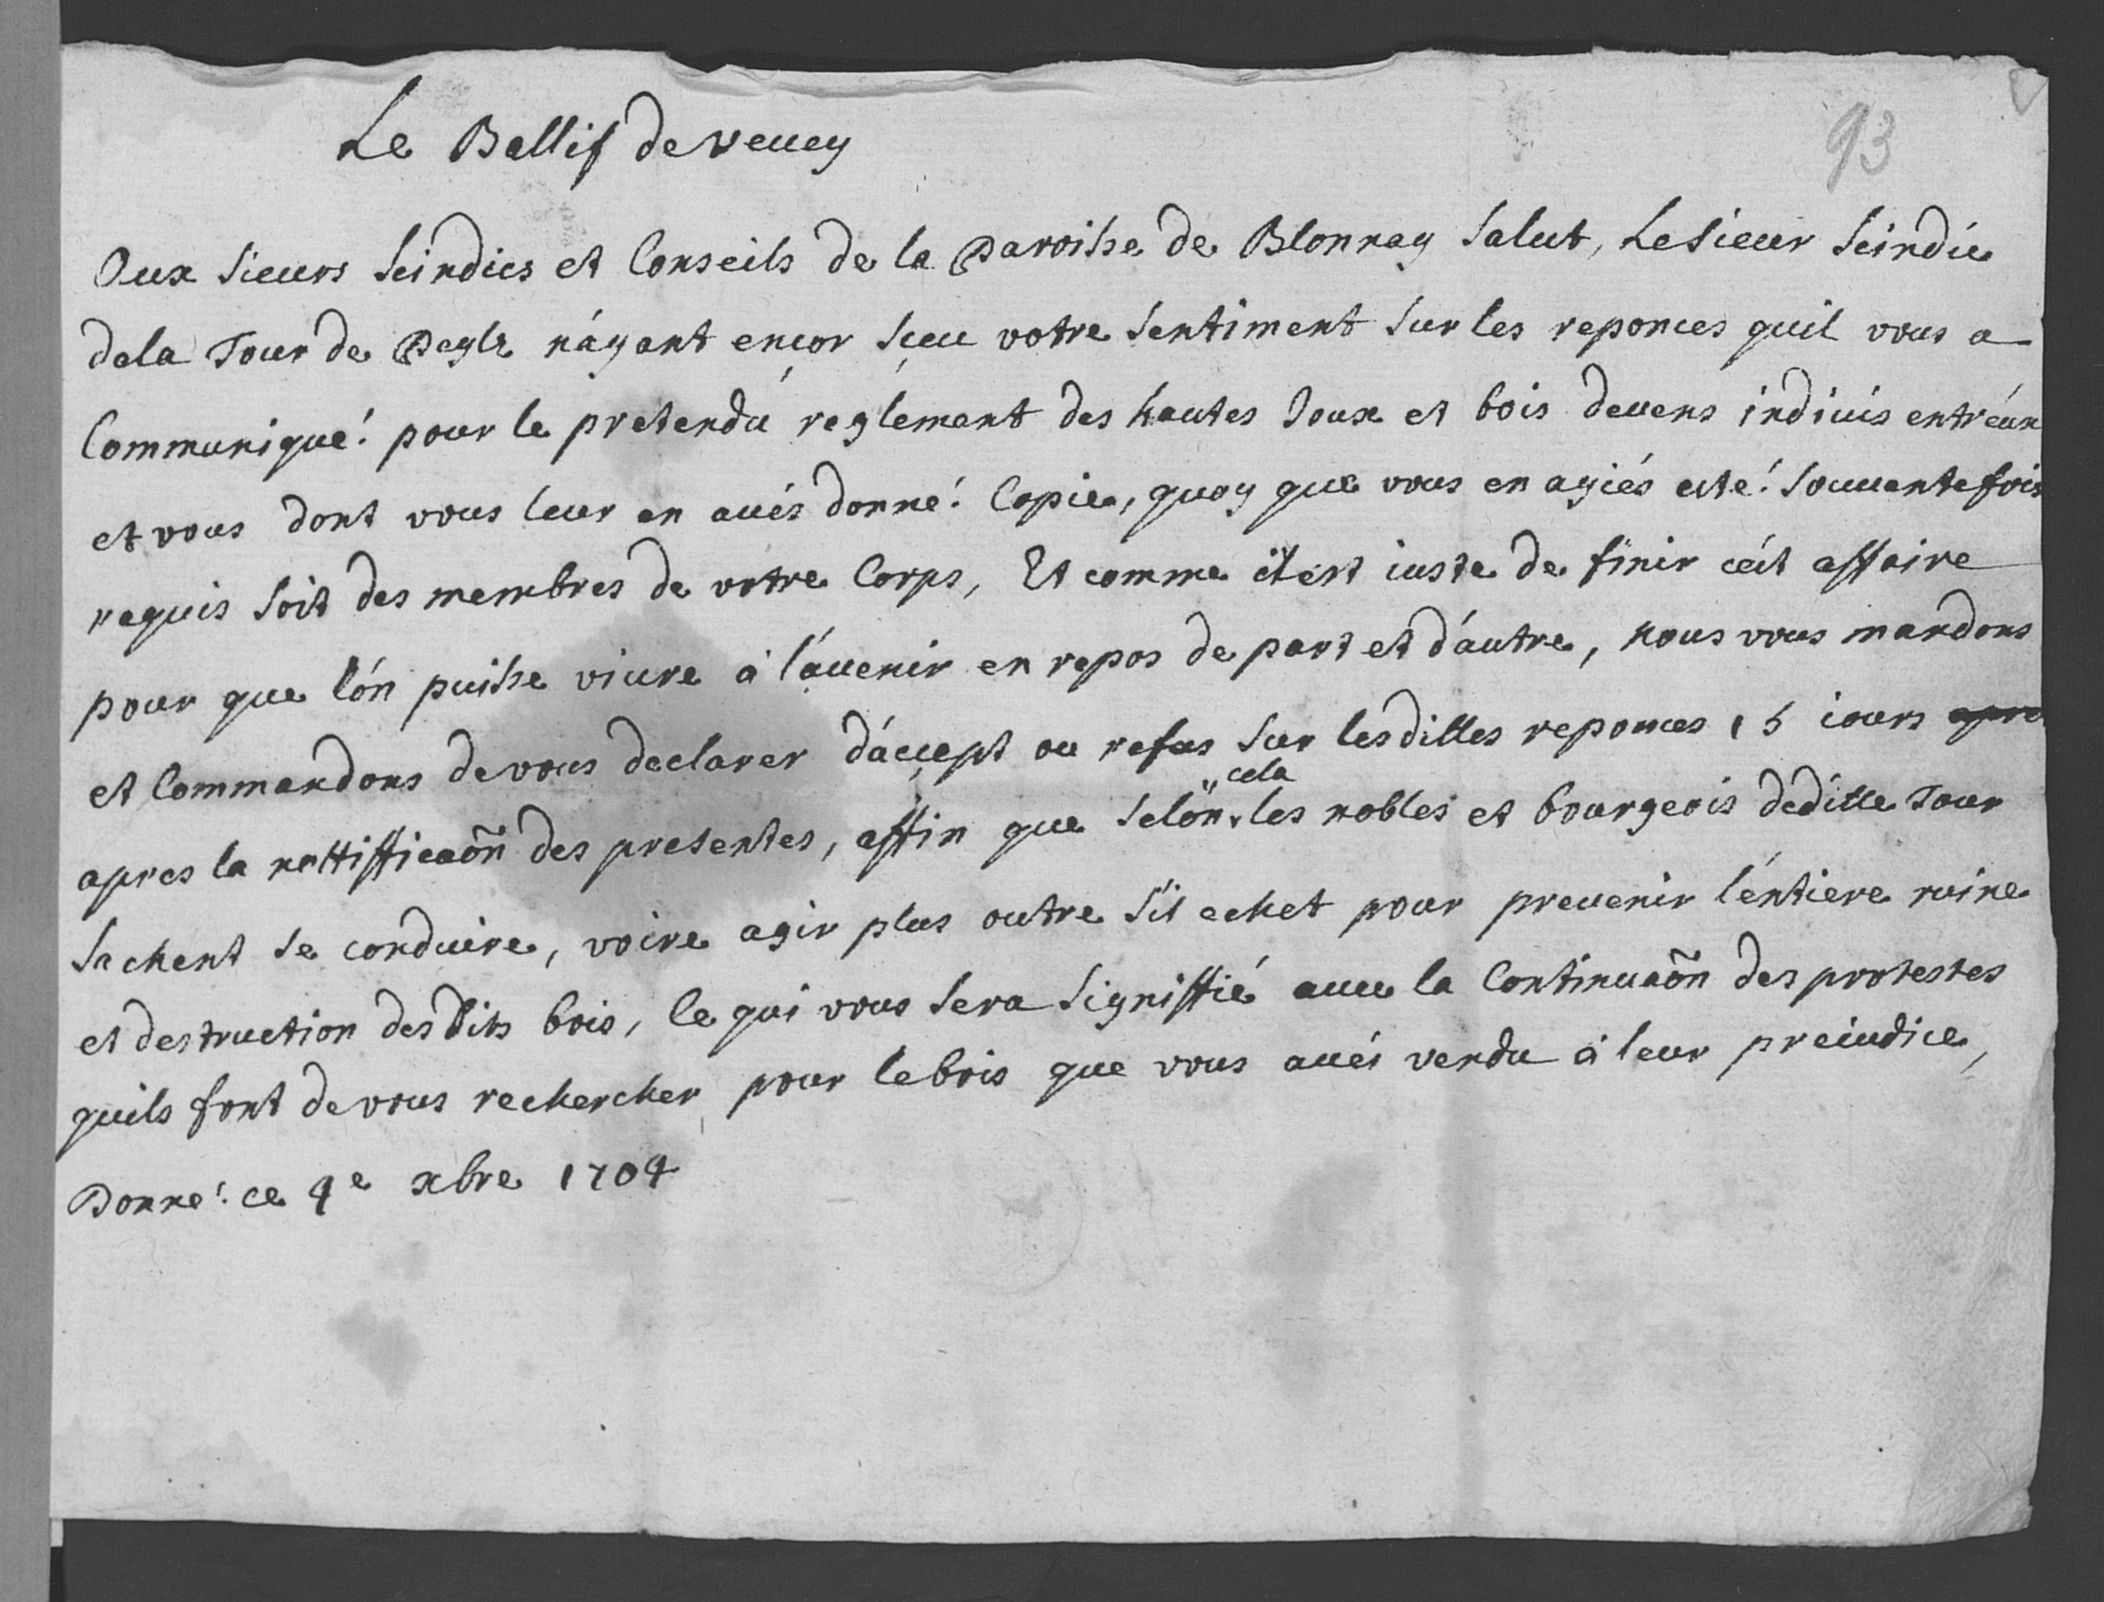 93
Le Ballif de Veuey
Aux Sieurs Seindics et Conseils de la Paroisse de Blonnay Salut, Le Sieur Seindic
de la Tour de Peylz n'áyant encor sceu votre Sentiment Sur les reponces quil vous a
Communiqué pour le pretendu reglement des hautes Joux et bois deuens indiuis entr'eux
et vous dont vous leur en aués donné Copie, quoy que vous en ayiés esté Souuente fois
requis Soit des membres de votre Corps, Et comme il est iuste de finir cétt affaire
pour que l'ón puisse viure à l'áuenir en repos de part et d'áutre, nous vous mandons
et Commandons de vous declarer d'áccept ou refus Sur lesdittes reponces 15 iours apre
apres la nottifficaõn des presentes, affin que Selon cela les nobles et bourgeois deditte Tour
Sachent se conduire, voire agir plus outre S'il echet pour preuenir l'éntiere ruine
et destruction desdits bois, Ce qui vous Sera Signiffié auec la Continuaõn des protestes
quils font de vous rechercher pour le bois que vous aués vendu à leur preiudice,
Donné ce 9e xbre 1704